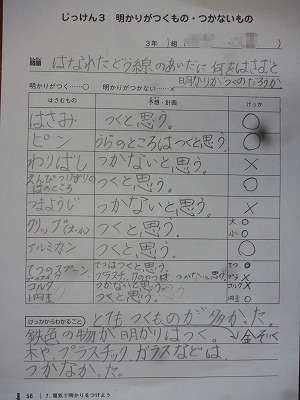 じっけん3 明かりがつくもの・つかないもの
3年 1組
問題 はなれたどう線のあいだに何をはさむと
明かりがつくのだろうか
明かりがつく……○ 明かりがつかない……×
はさむもの 予想・計画 けっか
はさみ つくと思う。 ○
ピン うらのところはつくと思う。 ○
わりばし つかないと思う。 ×
えんぴつけずりのはのところ つくと思う。 ○
つまようじ つかないと思う。 ×
クリップ(大・小) つくと思う。 大○ 小○
アルミカン つくと思う。 ○
てつのスプーン てつはつくと思う。 てつ○
プラスチック つかないと思う。 プラ×
コルク つかないと思う。 コルク×
1円玉 つくと思う。 1円玉○
けっかからわかること とてもつくものが多かった。
鉄色の物が明かりはつく。→金ぞく
木や、プラスチック、ガラスなどは
つかなかった。
58 7. 電気で明かりをつけよう